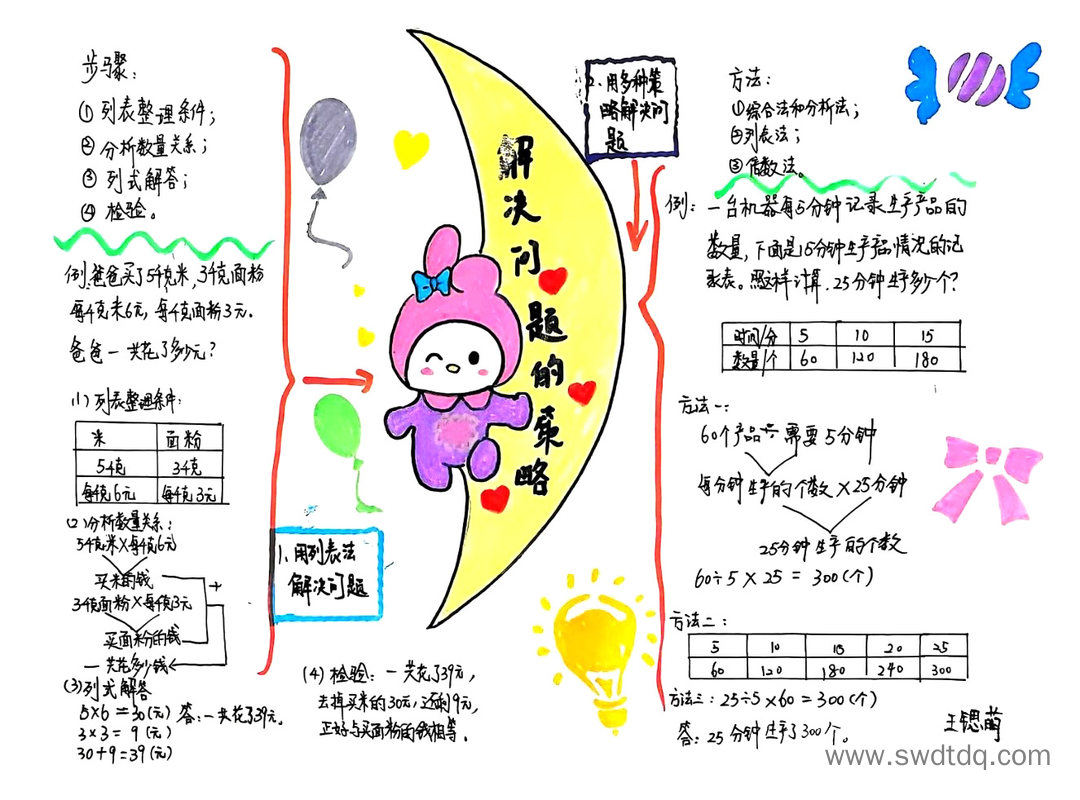 解决问题的策略
步骤:
① 列表整理条件;
② 分析数量关系;
③ 列式解答;
④ 检验。
例:爸爸买了5千克米,3千克面粉
每千克米6元,每千克面粉3元.
爸爸一共花了多少元?
(1) 列表整理条件:
米 面粉
5千克 3千克
每千克6元 每千克3元
(2) 分析数量关系:
5千克米×每千克6元
买米的钱
3千克面粉×每千克3元
+
买面粉的钱
一共花多少钱
(3) 列式解答
5×6=30(元) 答:一共花了39元。
3×3=9(元)
30+9=39(元)
1、用列表法
解决问题
(4) 检验:一共花了39元,
去掉买米的30元,还剩9元,
正好与买面粉的钱相等.
2、用多种策
略解决问
题
方法:
①综合法和分析法;
②列表法;
③倍数法。
例:一台机器每5分钟记录生产产品的
数量,下面是15分钟生产产品情况的记
录表。照这样计算,25分钟生产多少个?
时间/分 5 10 15
数量/个 60 120 180
方法一:
60个产品÷需要5分钟
每分钟生产的个数×25分钟
25分钟生产的个数
60÷5×25=300(个)
方法二:
5 10 15 20 25
60 120 180 240 300
方法三:25÷5×60=300(个)
答:25分钟生产了300个。
王锶萌
www.swdtdq.com